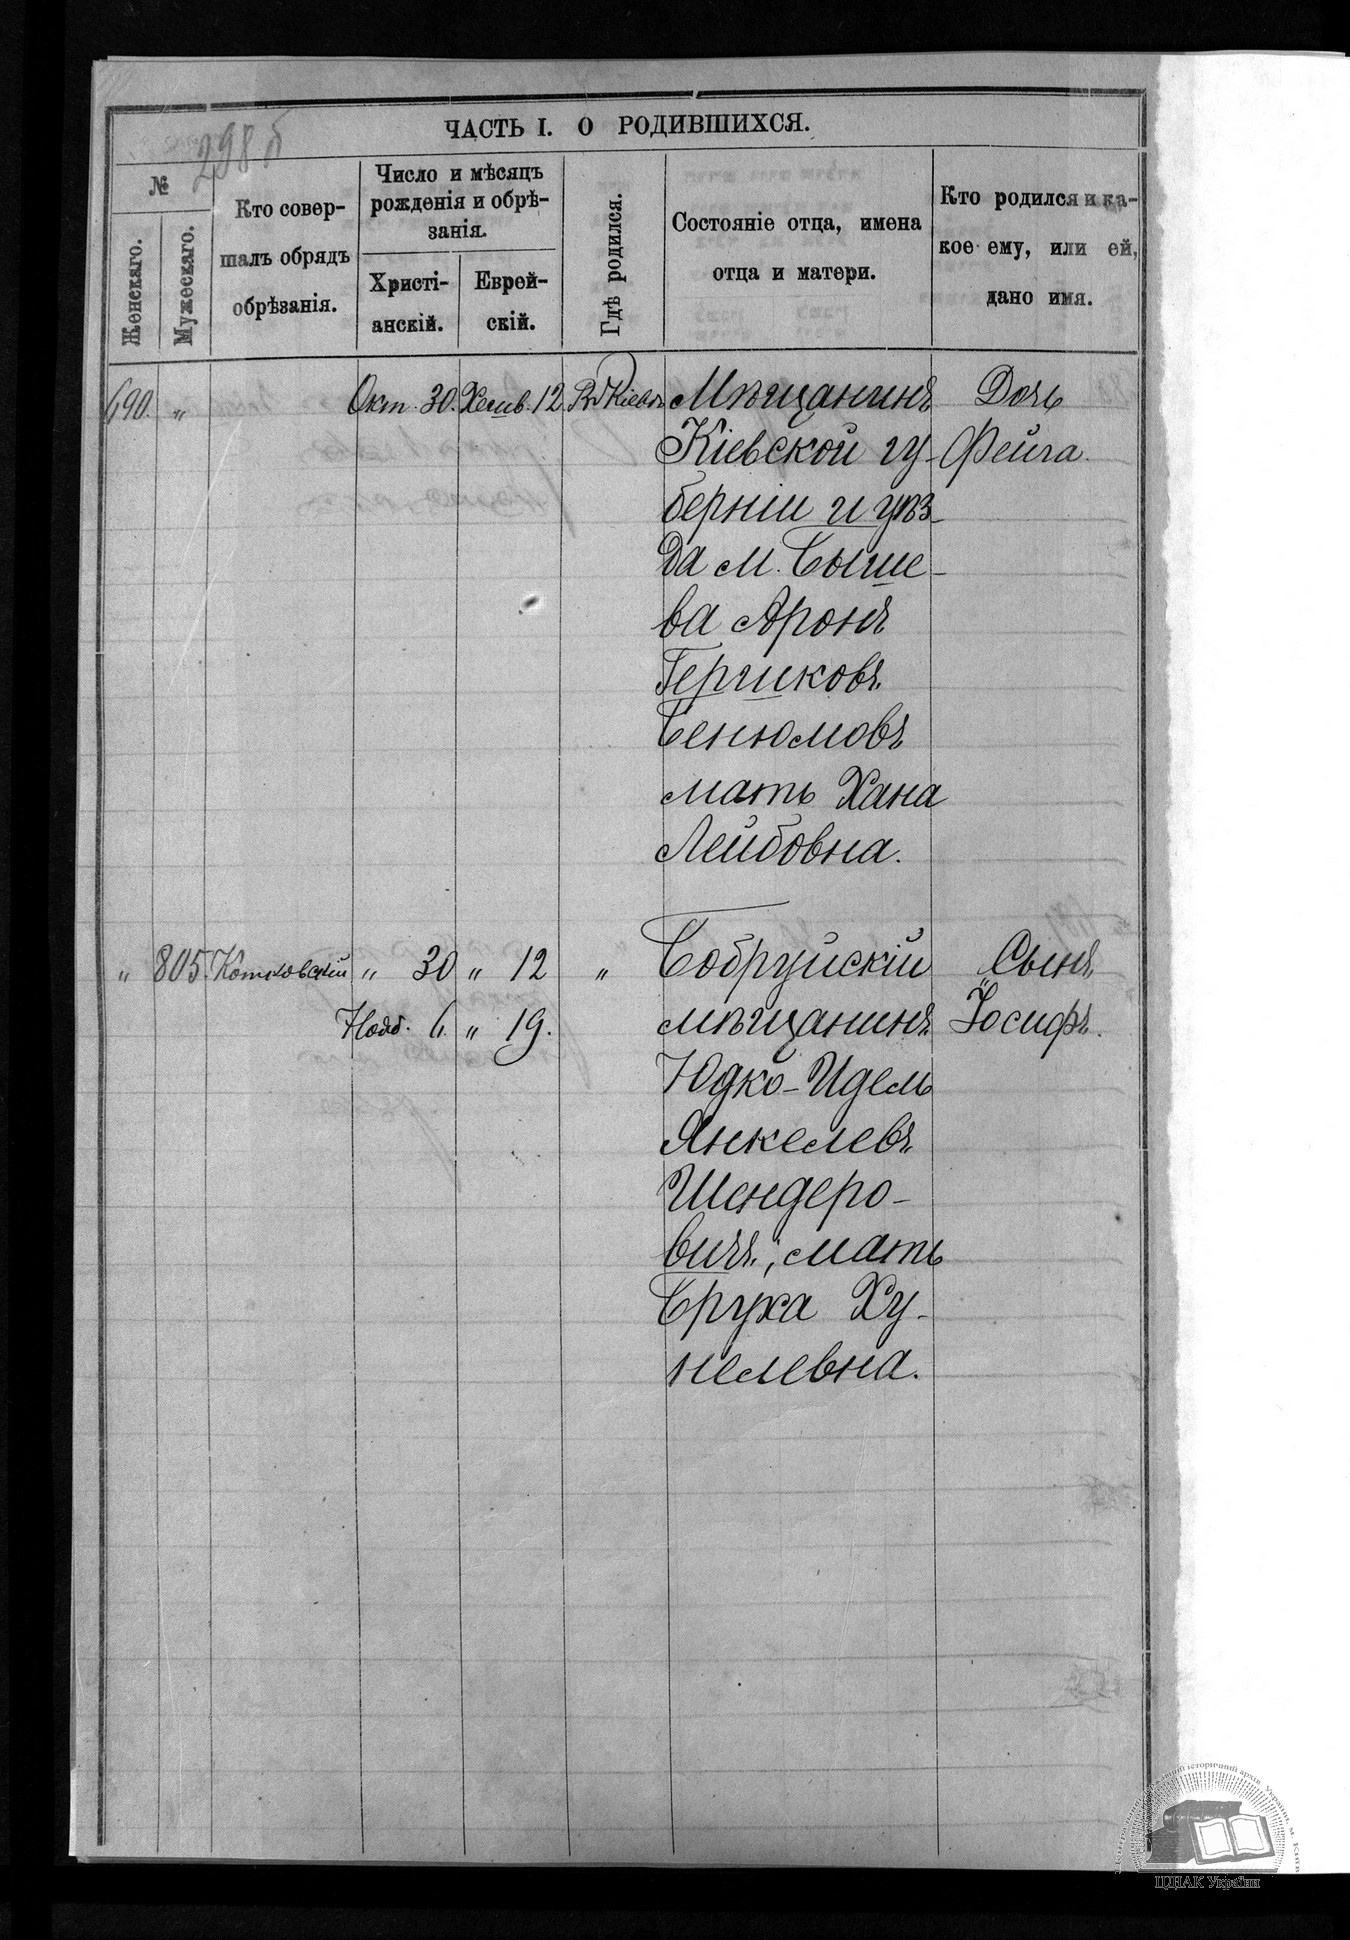 298б
ЧАСТЬ I. О РОДИВШИХСЯ.
№
Женскаго.
Мужескаго.
Кто совер-
шалъ обрядъ
обрѣзанія.
Число и мѣсяцъ
рожденія и обрѣ-
занія.
Христі-
анскій.
Еврей-
скій.
Гдѣ родился.
Состояніе отца, имена
отца и матери.
Кто родился и ка-
кое ему, или ей,
дано имя.
690. „ Окт. 30. Хешв. 12. Въ Кіевѣ Мѣщанинъ Дочь
Кіевской гу- Фейга.
берніи и уѣз-
да м. Быше-
ва Аронъ
Гершковъ
Бенюмовъ
мать Хана
Лейбовна.
„ 805. Котловскій „ 30 „ 12 „ Бобруйскій Сынъ
Нояб. 6. „ 19. мѣщанинъ Іосифъ.
Юдко-Идель
Янкелевъ
Шендеро-
вичъ, мать
Бруха Ху-
нелевна.
ЦДІАК України